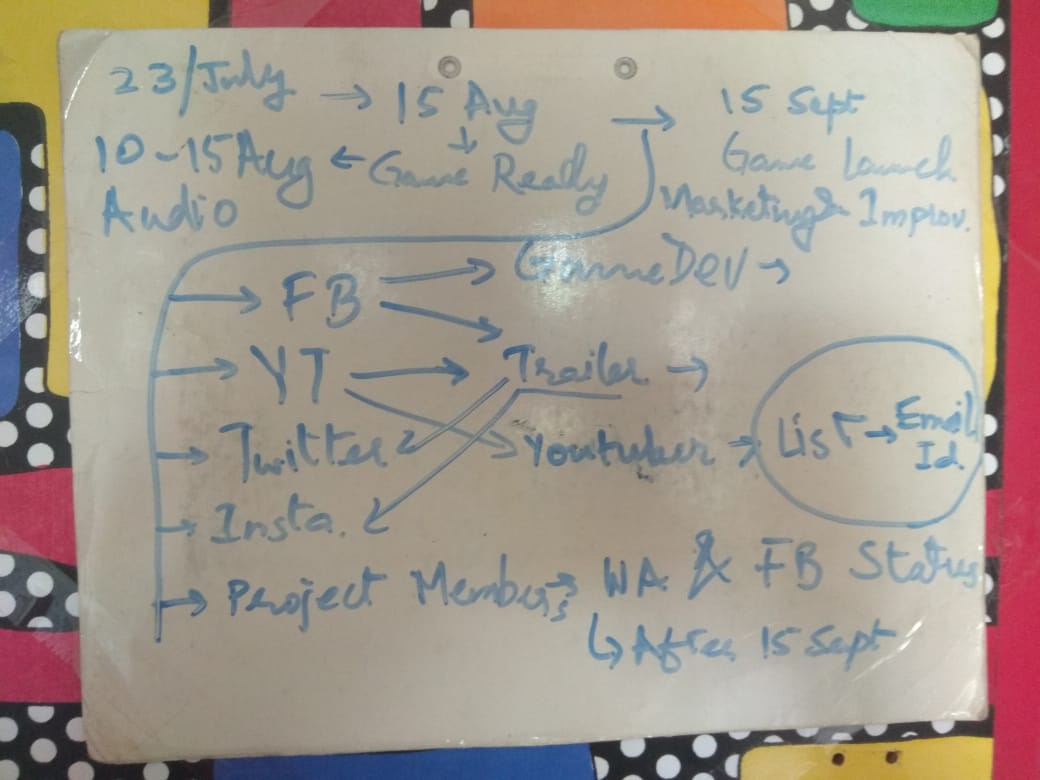 23/July → 15 Aug → 15 Sept
10-15 Aug ← Game Ready Game Launch
Audio Marketing & Improv.
→ FB → GameDev →
→ YT → Trailer →
→ Twitter → Youtuber → List → Email Id
→ Insta.
→ Project Members → WA & FB Status
↳ After 15 Sept